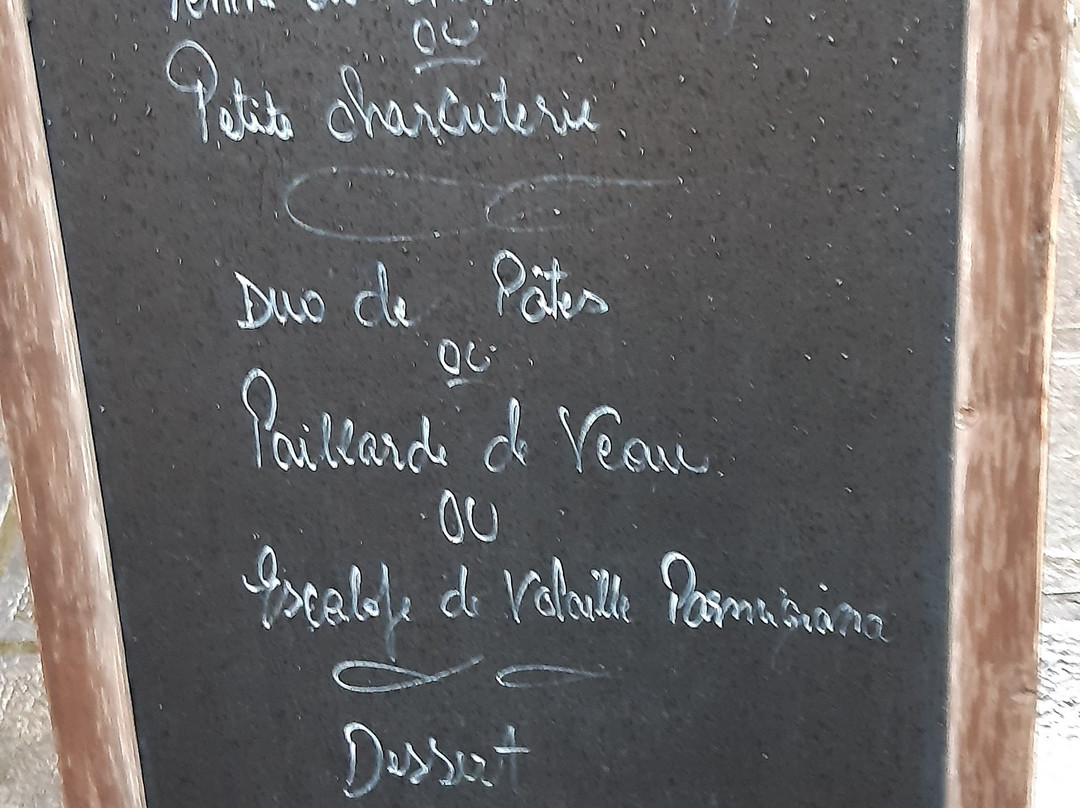 ou
Petite charcuterie
Duo de Pâtes
ou
Paillarde de Veau
OU
Escalope de Volaille Parmigiana
Dessert